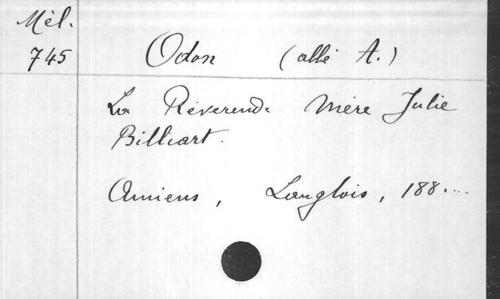 Mél.
745
Odon (abbé A.)
La Réverende Mère Julie
Billiart.
Amiens, Langlois, 188....